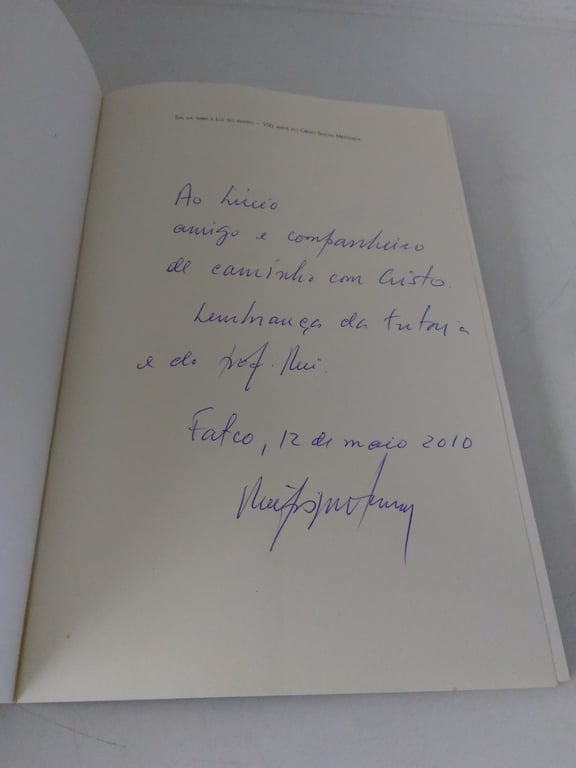 Sal da terra e luz do mundo – 100 anos do Credo Social Metodista
Ao Lúcio
amigo e companheiro
de caminho com Cristo.
Lembrança da tutoria
e do prof. Rui.
Fateo, 12 de maio 2010